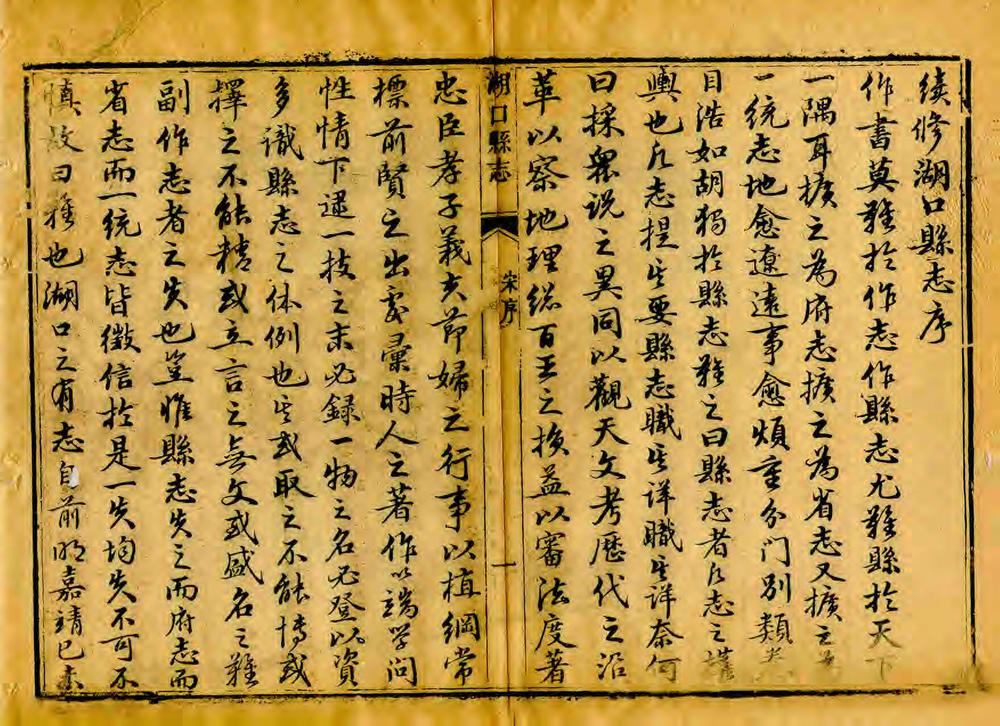 續修湖口縣志序
作書莫難於作志作縣志尤難縣於天下
一隅耳擴之為府志擴之為省志又擴之為
一統志地愈遼遠事愈煩重分門別類
目浩如胡獨於縣志難之曰縣志者凡志之權
輿也凡志提其要縣志職其詳職其詳奈何
曰採眾說之異同以觀天文考歷代之沿
革以察地理綜百王之損益以審法度著
湖口縣志
宋序
一
忠臣孝子義夫節婦之行事以植綱常
標前賢之出處彙時人之著作以端學問
性情下逮一技之末必錄一物之名必登以資
多識縣志之体例也其或取之不能博或
擇之不能精或立言之無文或盛名之難
副作志者之失也豈惟縣志失之而府志而
省志而一統志皆徵信於是一失均失不可不
慎故曰難也湖口之有志自前明嘉靖己未